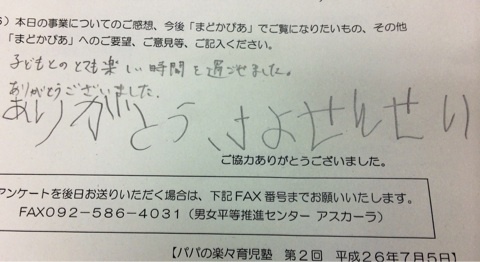 5）本日の事業についてのご感想、今後「まどかぴあ」でご覧になりたいもの、その他
「まどかぴあ」へのご要望、ご意見等、ご記入ください。
子どもとのとても楽しい時間を過ごせました。
ありがとうございました.
ありがとう、さよせんせい
ご協力ありがとうございました。
アンケートを後日お送りいただく場合は、下記FAX番号までお願いいたします。
FAX092-586-4031（男女平等推進センター アスカーラ）
【パパの楽々育児塾 第2回 平成26年7月5日】